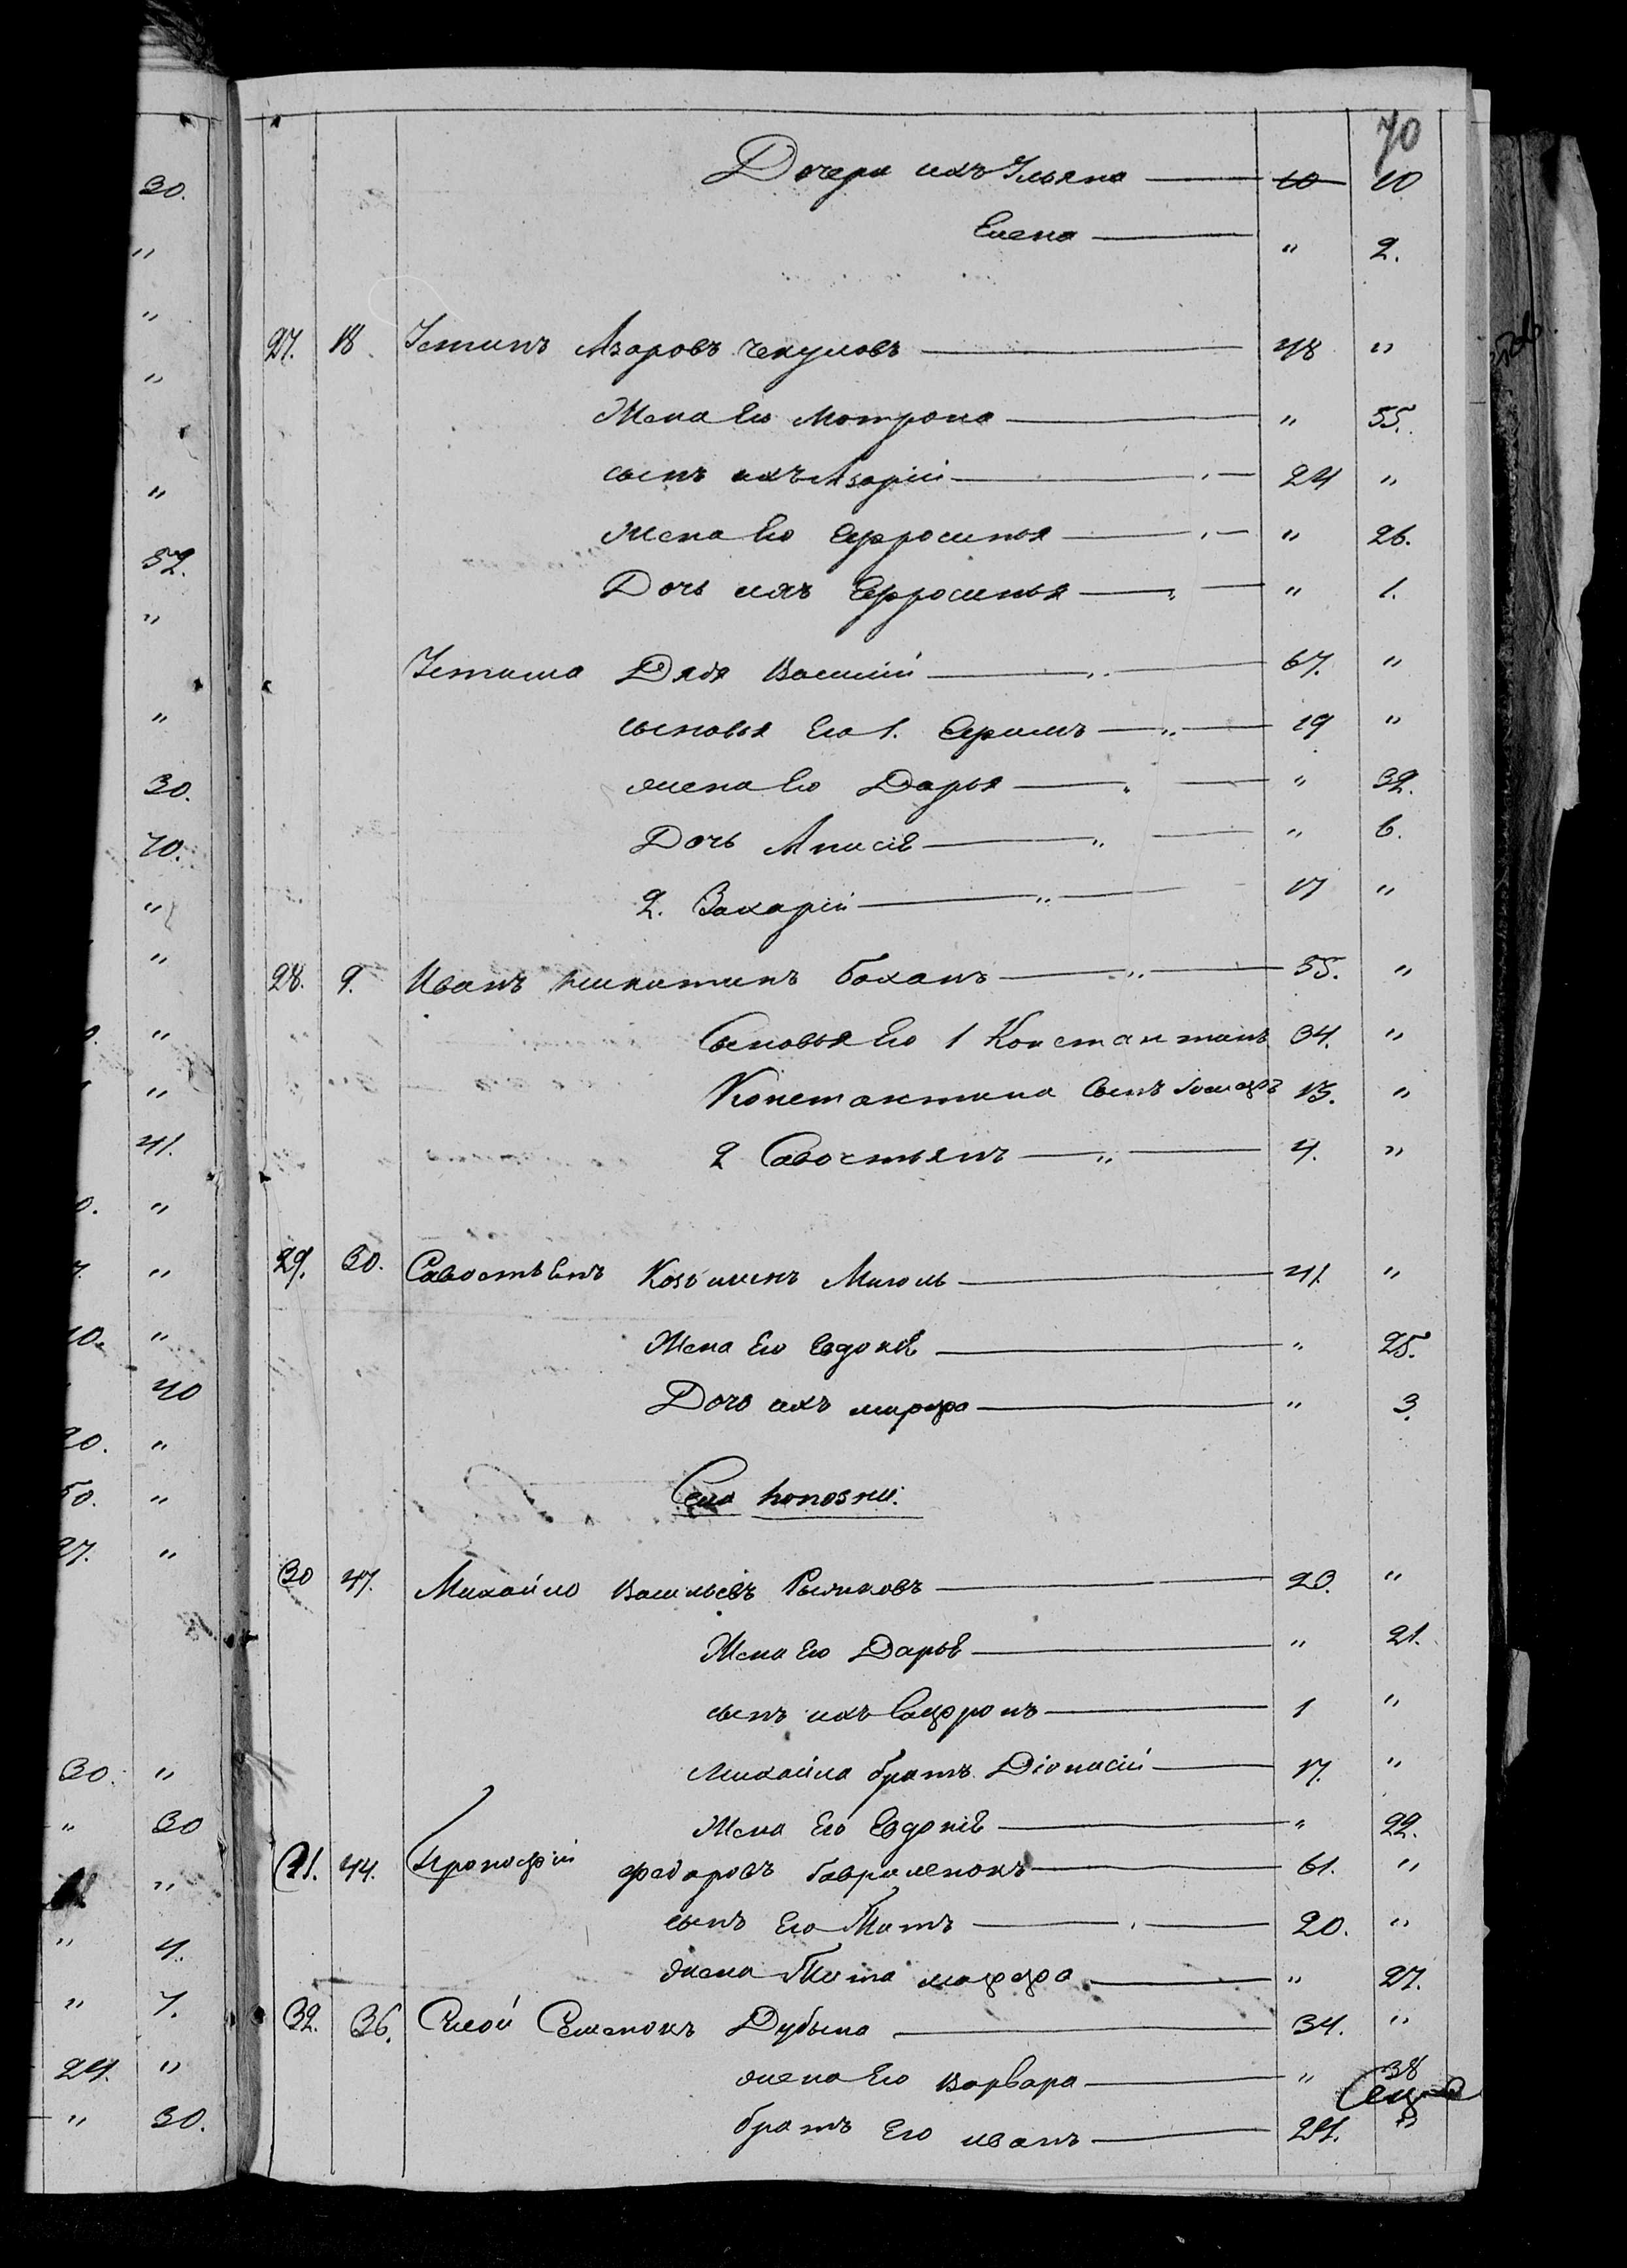 70
Дочери ихъ Ульяна 10 10
Елена " 2.
27. 18. Устинъ Азаровъ Чекуловъ 48 "
Жена Его Мотрона " 55.
сынъ ихъ Азарій 24 "
жена Его Ефросинья " 26.
Дочь ихъ Ефросинья " 1.
Устина Дядя Василій 67. "
сыновья Его 1. Ефимъ 19 "
жена Его Дарья " 32.
Дочь Анисіѣ " 6.
2. Захарій 17 "
28. 9. Иванъ Никитинъ Боханъ 55. "
Сыновья Его 1 Константинъ 34. "
Константина Сынъ 13. "
2 Савостьянъ 4. "
29. 30. Савостьянъ Козьминъ Миголь 41. "
Жена Его Евдокіѣ " 25.
Дочь ихъ Марфа " 3.
Село
30 47. Михайло Васильевъ 20. "
Жена Его Дарьѣ " 21.
сынъ ихъ Сафронъ 1 "
Михайла братъ Діонисій 17. "
Жена Его Евдокіѣ " 22.
31. 44. Прокофій Федоровъ Гавриленокъ 61. "
сынъ Его Титъ 20. "
жена Тита Марфа " 27.
32. 36. Сысой Семенокъ Дубына 34. "
жена Его Варвара " 38
братъ Его Иванъ 24. "